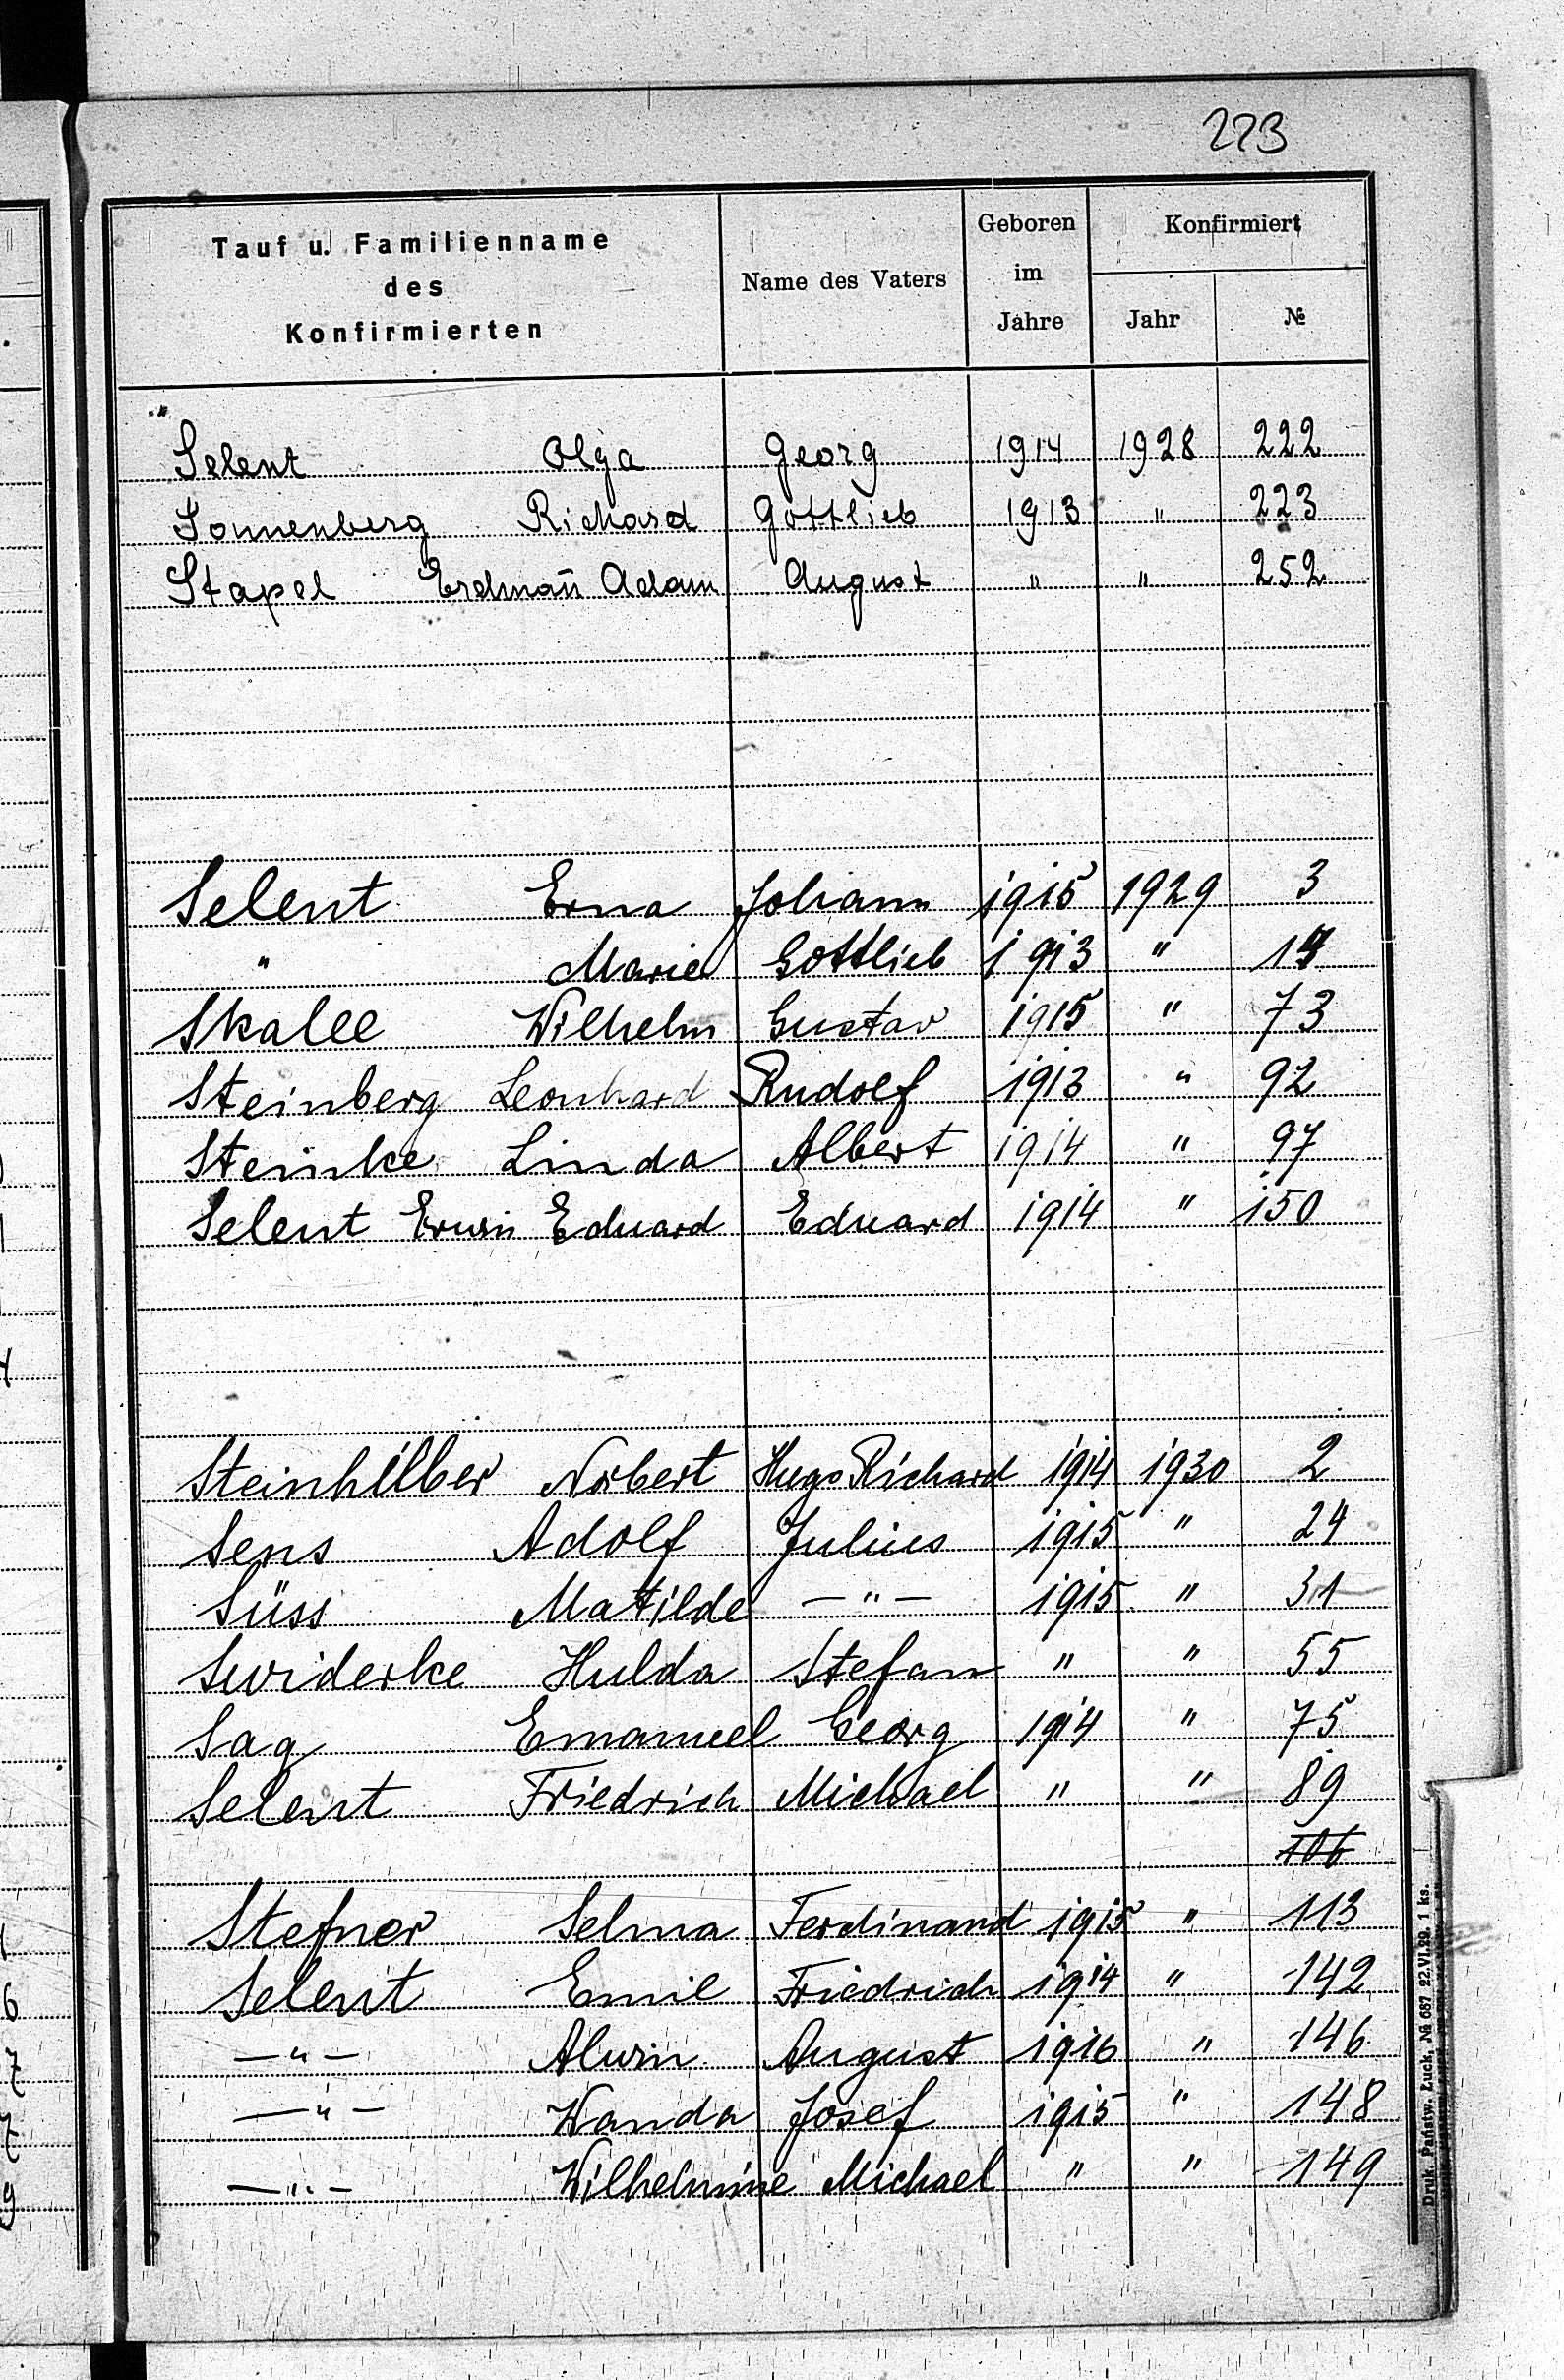 223
Tauf u. Familienname des Konfirmierten | Name des Vaters | Geboren im Jahre | Konfirmiert Jahr | №
Selent Olga Georg 1914 1928 222
Sonnenberg Richard Gottlieb 1913 " 223
Stapel Erdman̄ Adam August " " 252
Selent Erna Johann 1915 1929 3
" Marie Gottlieb 1913 "
Skalee Wilhelm Gustav 1915 " 73
Steinberg Leonhard Rudolf 1913 " 92
Steinke Linda Albert 1914 " 97
Selent Erwin Eduard Eduard 1914 " 150
Steinhilber Norbert Hugo Richard 1914 1930 2
Sens Adolf Julius 1915 " 24
Süss Matilde —"— 1915 " 31
Swiderke Hulda Stefan " " 55
Sag Emanuel Georg 1914 " 75
Selent Friedrich Michael " " 89
106
Stefner Selma Ferdinand 1915 " 113
Selent Emil Friedrich 1914 " 142
—"— Alwin August 1916 " 146
—"— Wanda Josef 1915 " 148
—"— Wilhelmine Michael " " 149
Druk. Państw. Łuck, № 687 22.VI.29. 1 ks.